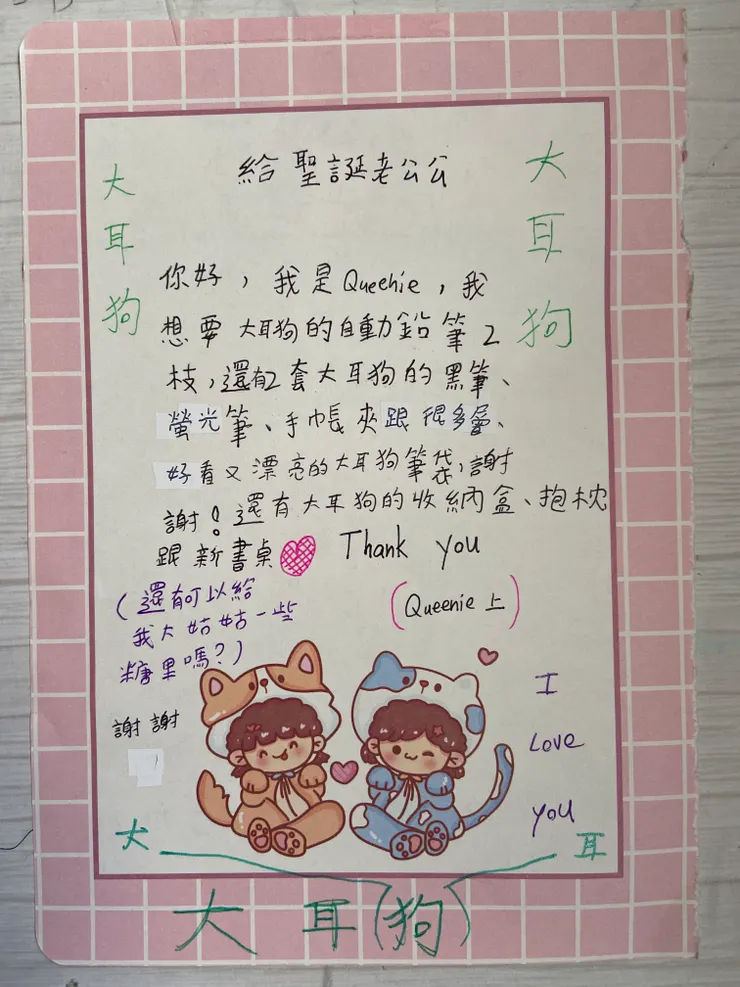 給聖誕老公公
大耳狗
大耳狗
你好，我是Queenie，我
想要大耳狗的自動鉛筆2
枝，還有2套大耳狗的黑筆、
螢光筆、手帳夾跟很多層、
好看又漂亮的大耳狗筆袋，謝
謝！還有大耳狗的收納盒、抱枕
跟新書桌 Thank you
(Queenie上)
(還有可以給
我大姑姑一些
糖果嗎?)
謝謝
I
Love
you
大 耳
大耳(狗)